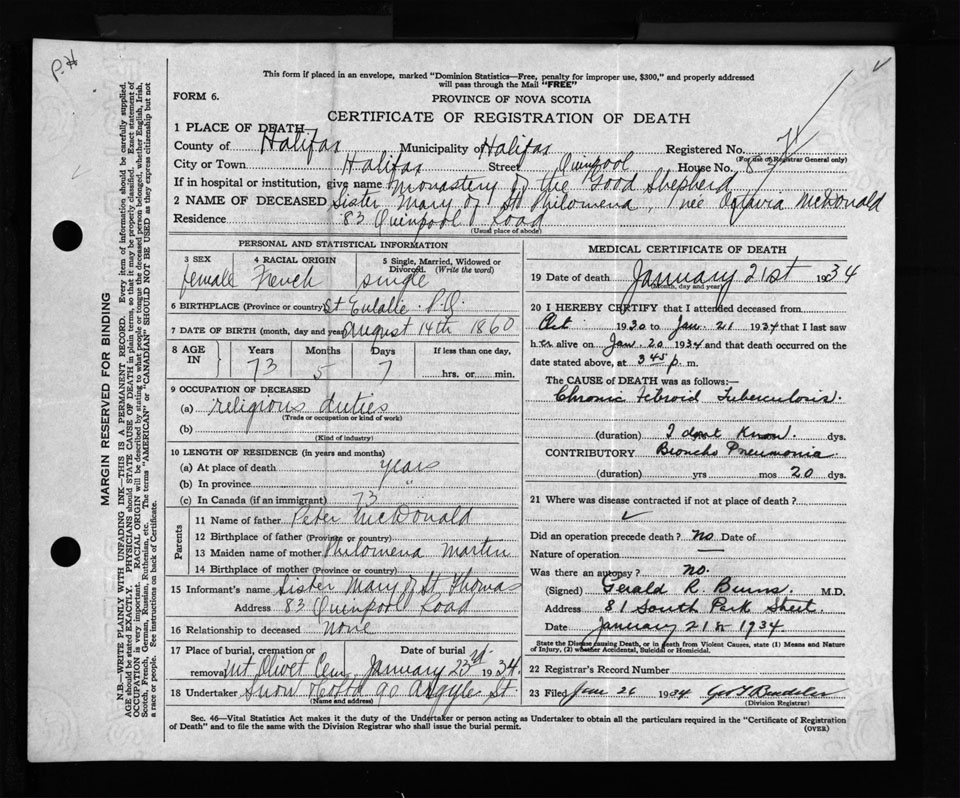 P.H
This form if placed in an envelope, marked "Dominion Statistics—Free, penalty for improper use, $300," and properly addressed
will pass through the Mail "FREE"
FORM 6.
PROVINCE OF NOVA SCOTIA
CERTIFICATE OF REGISTRATION OF DEATH
1 PLACE OF DEATH
County of Halifax Municipality of Halifax Registered No.
(For use of Registrar General only)
City or Town Halifax Street Quinpool House No. 83
If in hospital or institution, give name Monastery of the Good Shepherd
2 NAME OF DECEASED Sister Mary of St Philomena, nee Octavia McDonald
Residence 83 Quinpool Road
(Usual place of abode)
PERSONAL AND STATISTICAL INFORMATION
3 SEX female
4 RACIAL ORIGIN French
5 Single, Married, Widowed or Divorced. (Write the word) single
6 BIRTHPLACE (Province or country) St Eulalie P.Q.
7 DATE OF BIRTH (month, day and year) August 14th 1860
8 AGE IN Years 73 Months 5 Days 7 If less than one day, hrs. or min.
9 OCCUPATION OF DECEASED
(a) religious duties
(Trade or occupation or kind of work)
(b)
(Kind of industry)
10 LENGTH OF RESIDENCE (in years and months)
(a) At place of death years
(b) In province "
(c) In Canada (if an immigrant) 73
Parents
11 Name of father Peter McDonald
12 Birthplace of father (Province or country)
13 Maiden name of mother Philomena Martin
14 Birthplace of mother (Province or country)
15 Informant's name Sister Mary of St Thomas
Address 83 Quinpool Road
16 Relationship to deceased none
17 Place of burial, cremation or removal Mt Olivet Cem. Date of burial January 23rd 1934
18 Undertaker Snow 90 Argyle St.
(Name and address)
MEDICAL CERTIFICATE OF DEATH
19 Date of death January 21st 1934
(Month, day and year)
20 I HEREBY CERTIFY that I attended deceased from
Oct 1930 to Jan. 21 1934 that I last saw
her alive on Jan. 20 1934 and that death occurred on the
date stated above, at 3 45 p. m.
The CAUSE OF DEATH was as follows:—
Chronic Fibroid Tuberculosis.
(duration) I dont know. dys.
CONTRIBUTORY Broncho Pneumonia
(duration) yrs mos 20 dys.
21 Where was disease contracted if not at place of death?
✓
Did an operation precede death? no Date of
Nature of operation —
Was there an autopsy? no.
(Signed) Gerald R. Burns. M.D.
Address 81 South Park Street.
Date January 21st 1934.
State the Disease causing Death, or in death from Violent Causes, state (1) Means and Nature
of Injury, (2) whether Accidental, Suicidal or Homicidal.
22 Registrar's Record Number
23 Filed June 26 1934
(Division Registrar)
Sec. 46—Vital Statistics Act makes it the duty of the Undertaker or person acting as Undertaker to obtain all the particulars required in the "Certificate of Registration
of Death" and to file the same with the Division Registrar who shall issue the burial permit.
(OVER)
MARGIN RESERVED FOR BINDING
N.B.—WRITE PLAINLY WITH UNFADING INK—THIS IS A PERMANENT RECORD. Every item of information should be carefully supplied.
AGE should be stated EXACTLY. PHYSICIANS should STATE CAUSE OF DEATH in plain terms, so that it may be properly classified. Exact statement of
OCCUPATION is very important. RACIAL ORIGIN will be described by stating to what people or tongue the deceased person belonged, whether English, Irish,
Scotch, French, German, Russian, Ruthenian, etc. The terms "AMERICAN" or "CANADIAN" SHOULD NOT BE USED as they express citizenship but not
a race or people. See instructions on back of Certificate.